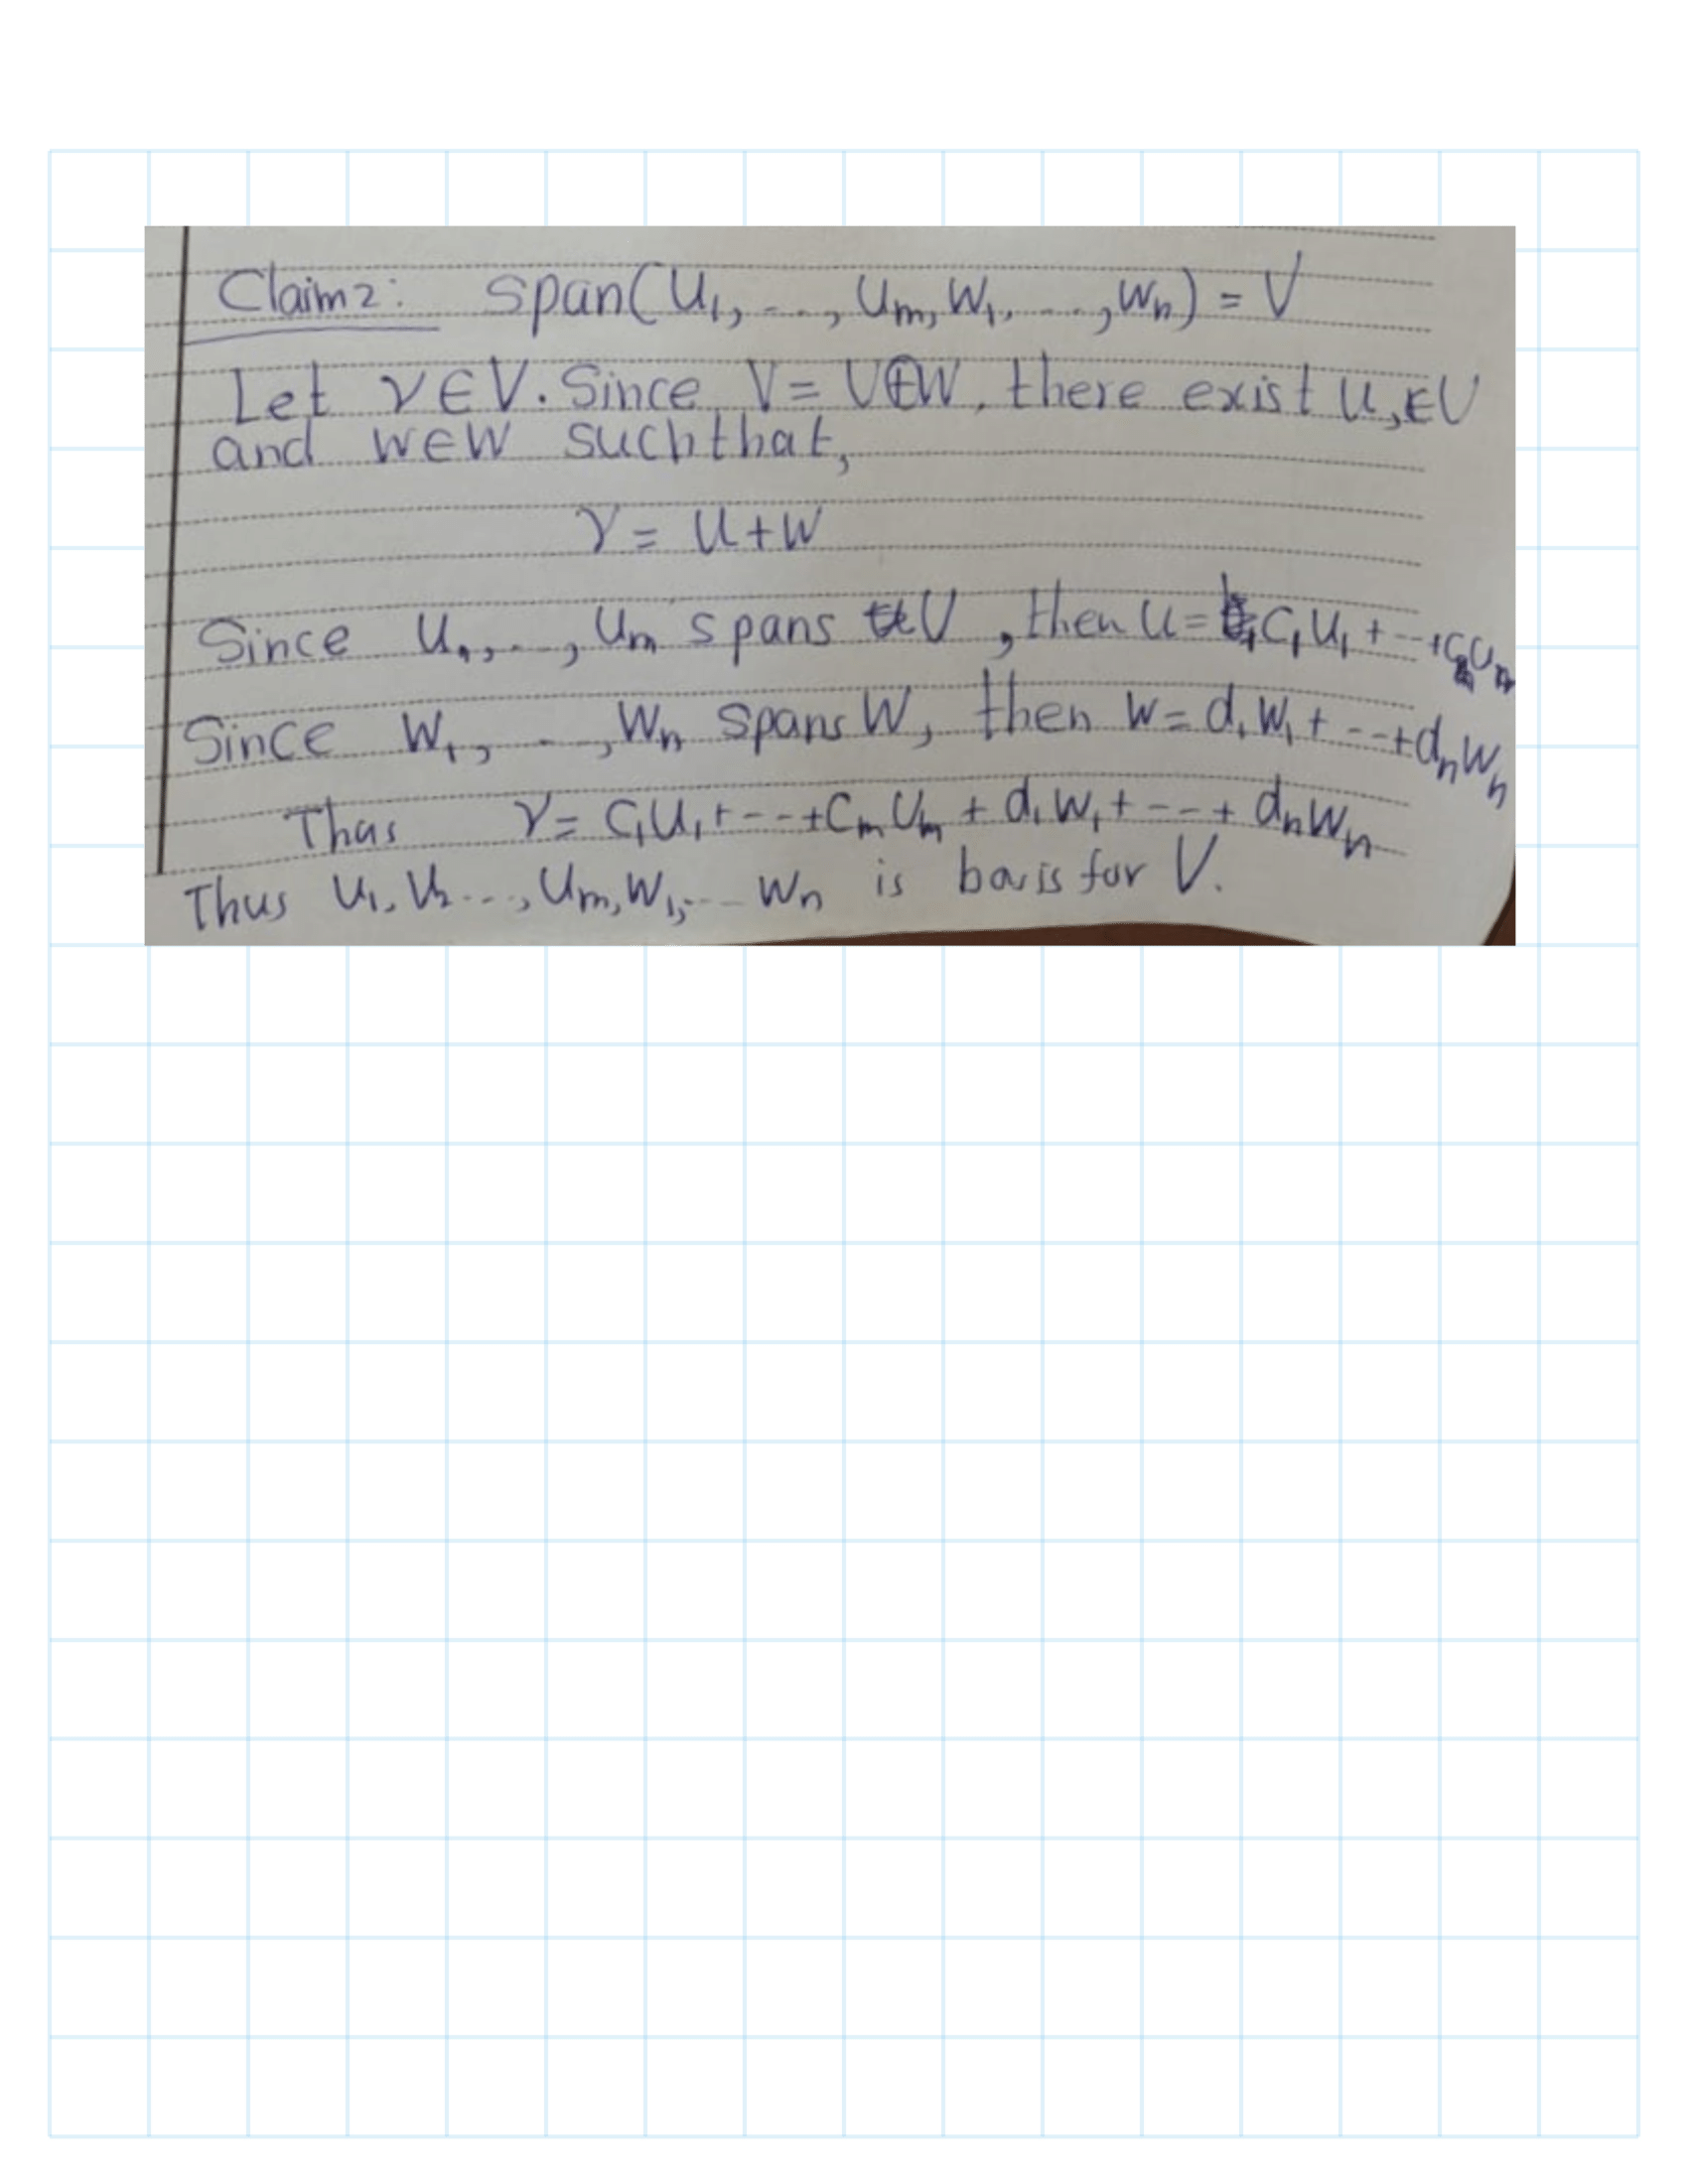 Claim 2: span(u₁, ..., uₘ, w₁, ..., wₙ) = V
Let v∈V. Since V = U⊕W, there exist u,∈U
and w∈W such that,
v = u+w
Since u₁, ..., uₘ spans U, then u = c₁u₁ + ... + cₘuₘ
Since w₁, ..., wₙ spans W, then w = d₁w₁ + ... + dₙwₙ
Thas v = c₁u₁ + ... + cₘuₘ + d₁w₁ + ... + dₙwₙ
Thus u₁, u₂ ..., uₘ, w₁, ... wₙ is basis for V.